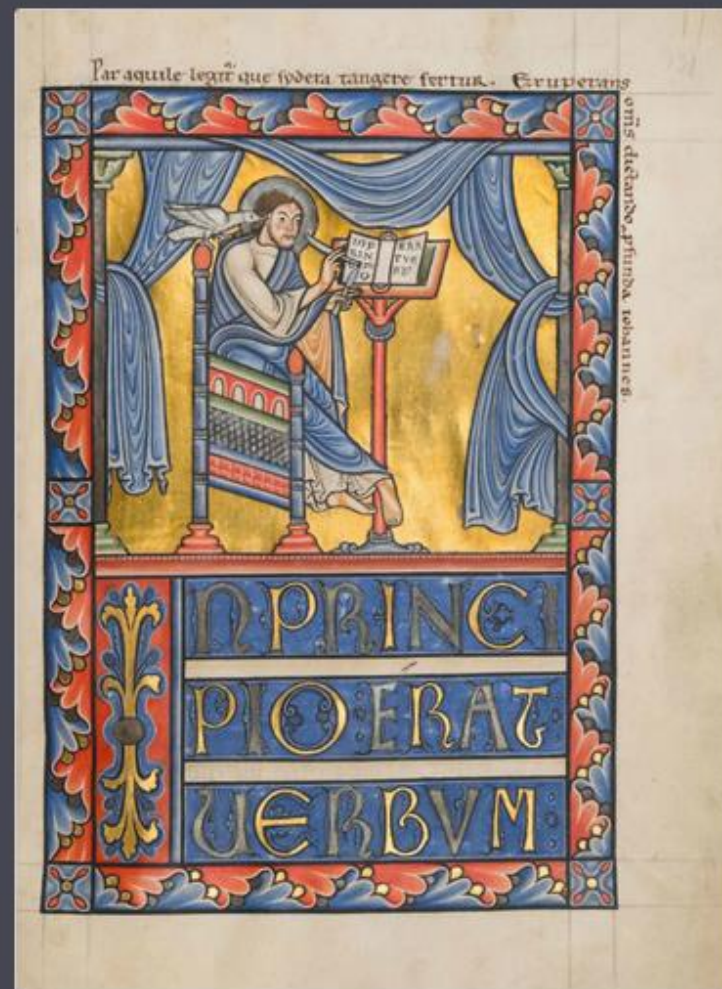 Par aquile legit᷑ que sydera tangere fertur. Exuperans
om̄s dictando pfunda iohannes.
IN P
RIN
ERA
T VE
INPRINCI
PIO:ERAT
UERBVM: